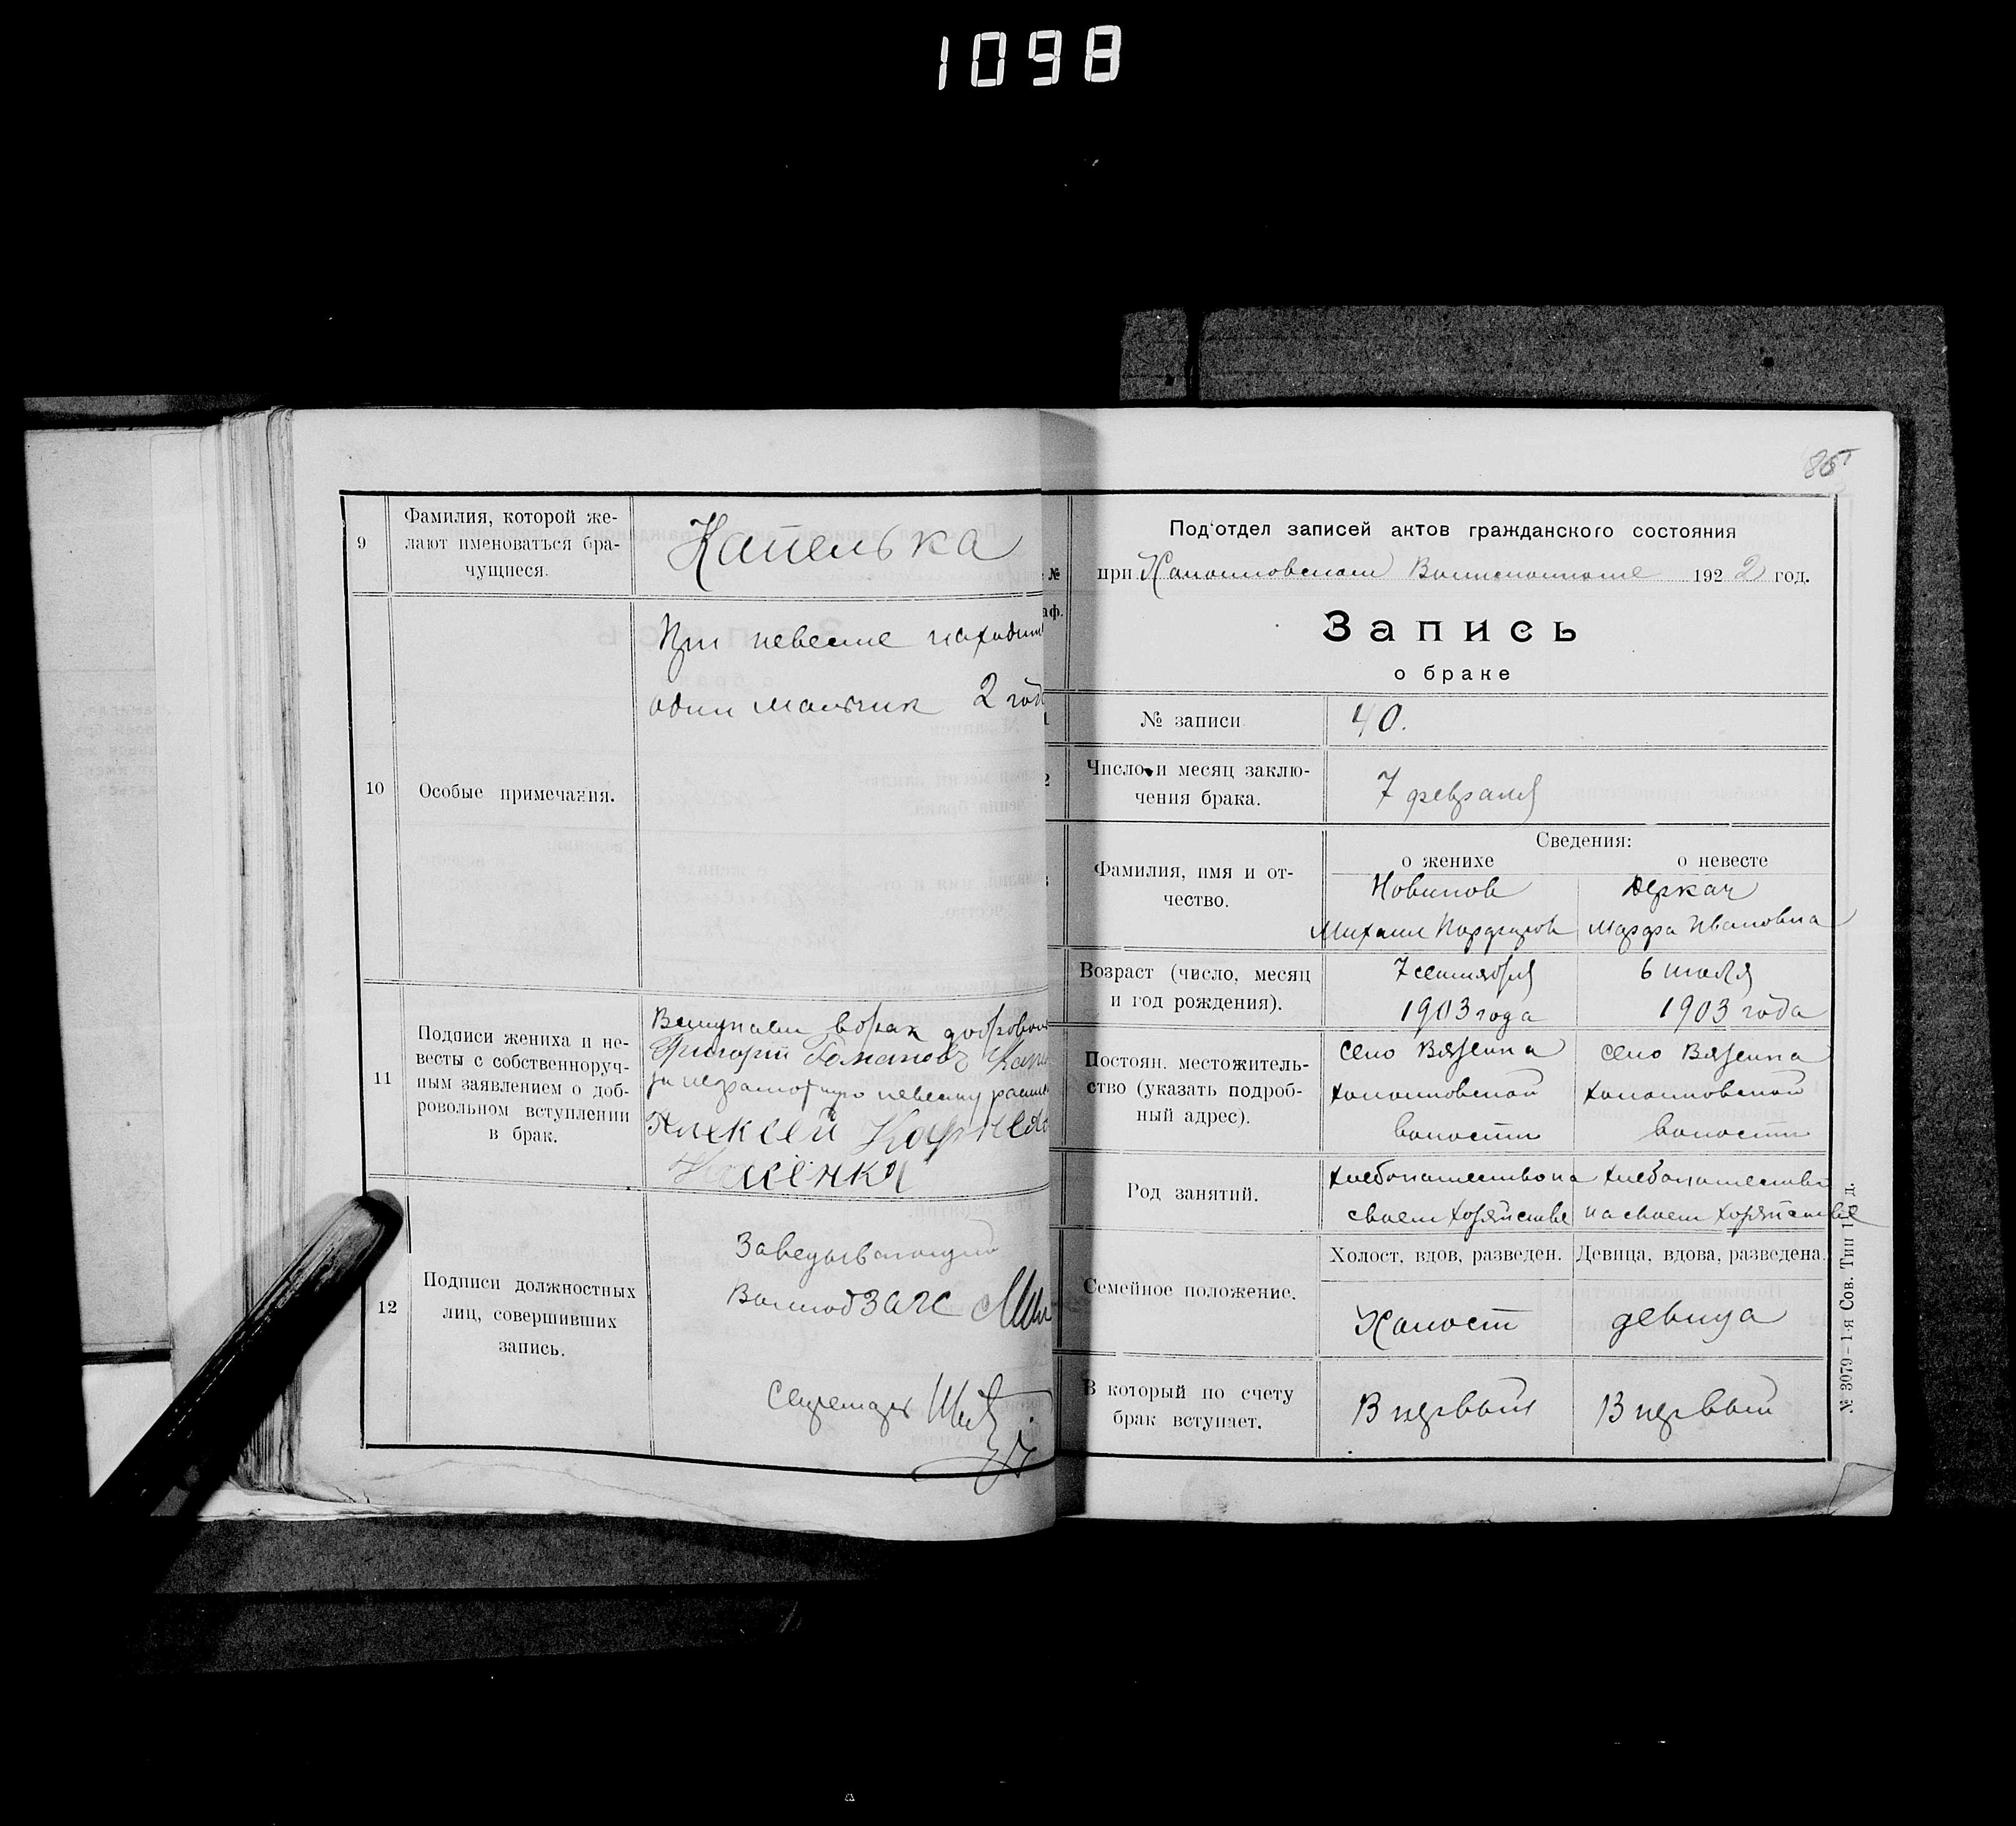 1098
9
Фамилия, которой же-
лают именоваться бра-
чущиеся.
Капелька
10
Особые примечания.
При невесте находит
один мальчик 2 год
11
Подписи жениха и не-
весты с собственноруч-
ным заявлением о доб-
ровольном вступлении
в брак.
Вступаем в брак добровол
Григорий Романовъ Капе
за неграмотную невесту
Алексей
12
Подписи должностных
лиц, совершивших
запись.
Заведывающий
ЗАГС
Секретарь
№
аф.
85
Под'отдел записей актов гражданского состояния
при Волисполкоме 1922 год.
Запись
о браке
№ записи
40.
Число и месяц заклю-
чения брака.
7 февраля
Сведения:
о женихе
о невесте
Фамилия, имя и от-
чество.
Новиков
Деркач
Михаил
Марфа Ивановна
Возраст (число, месяц
и год рождения).
7 сентября
6 июля
1903 года
1903 года
Постоян. местожитель-
ство (указать подроб-
ный адрес).
село Вязенка
село Вязенка
волости
волости
Род занятий.
хлебопашество на
хлебопашество
своем хозяйстве
на своем хозяйстве
Семейное положение.
Холост, вдов, разведен.
Девица, вдова, разведена.
Холост
девица
В который по счету
брак вступает.
В первый
В первый
№ 3079 – 1-я Сов. Тип